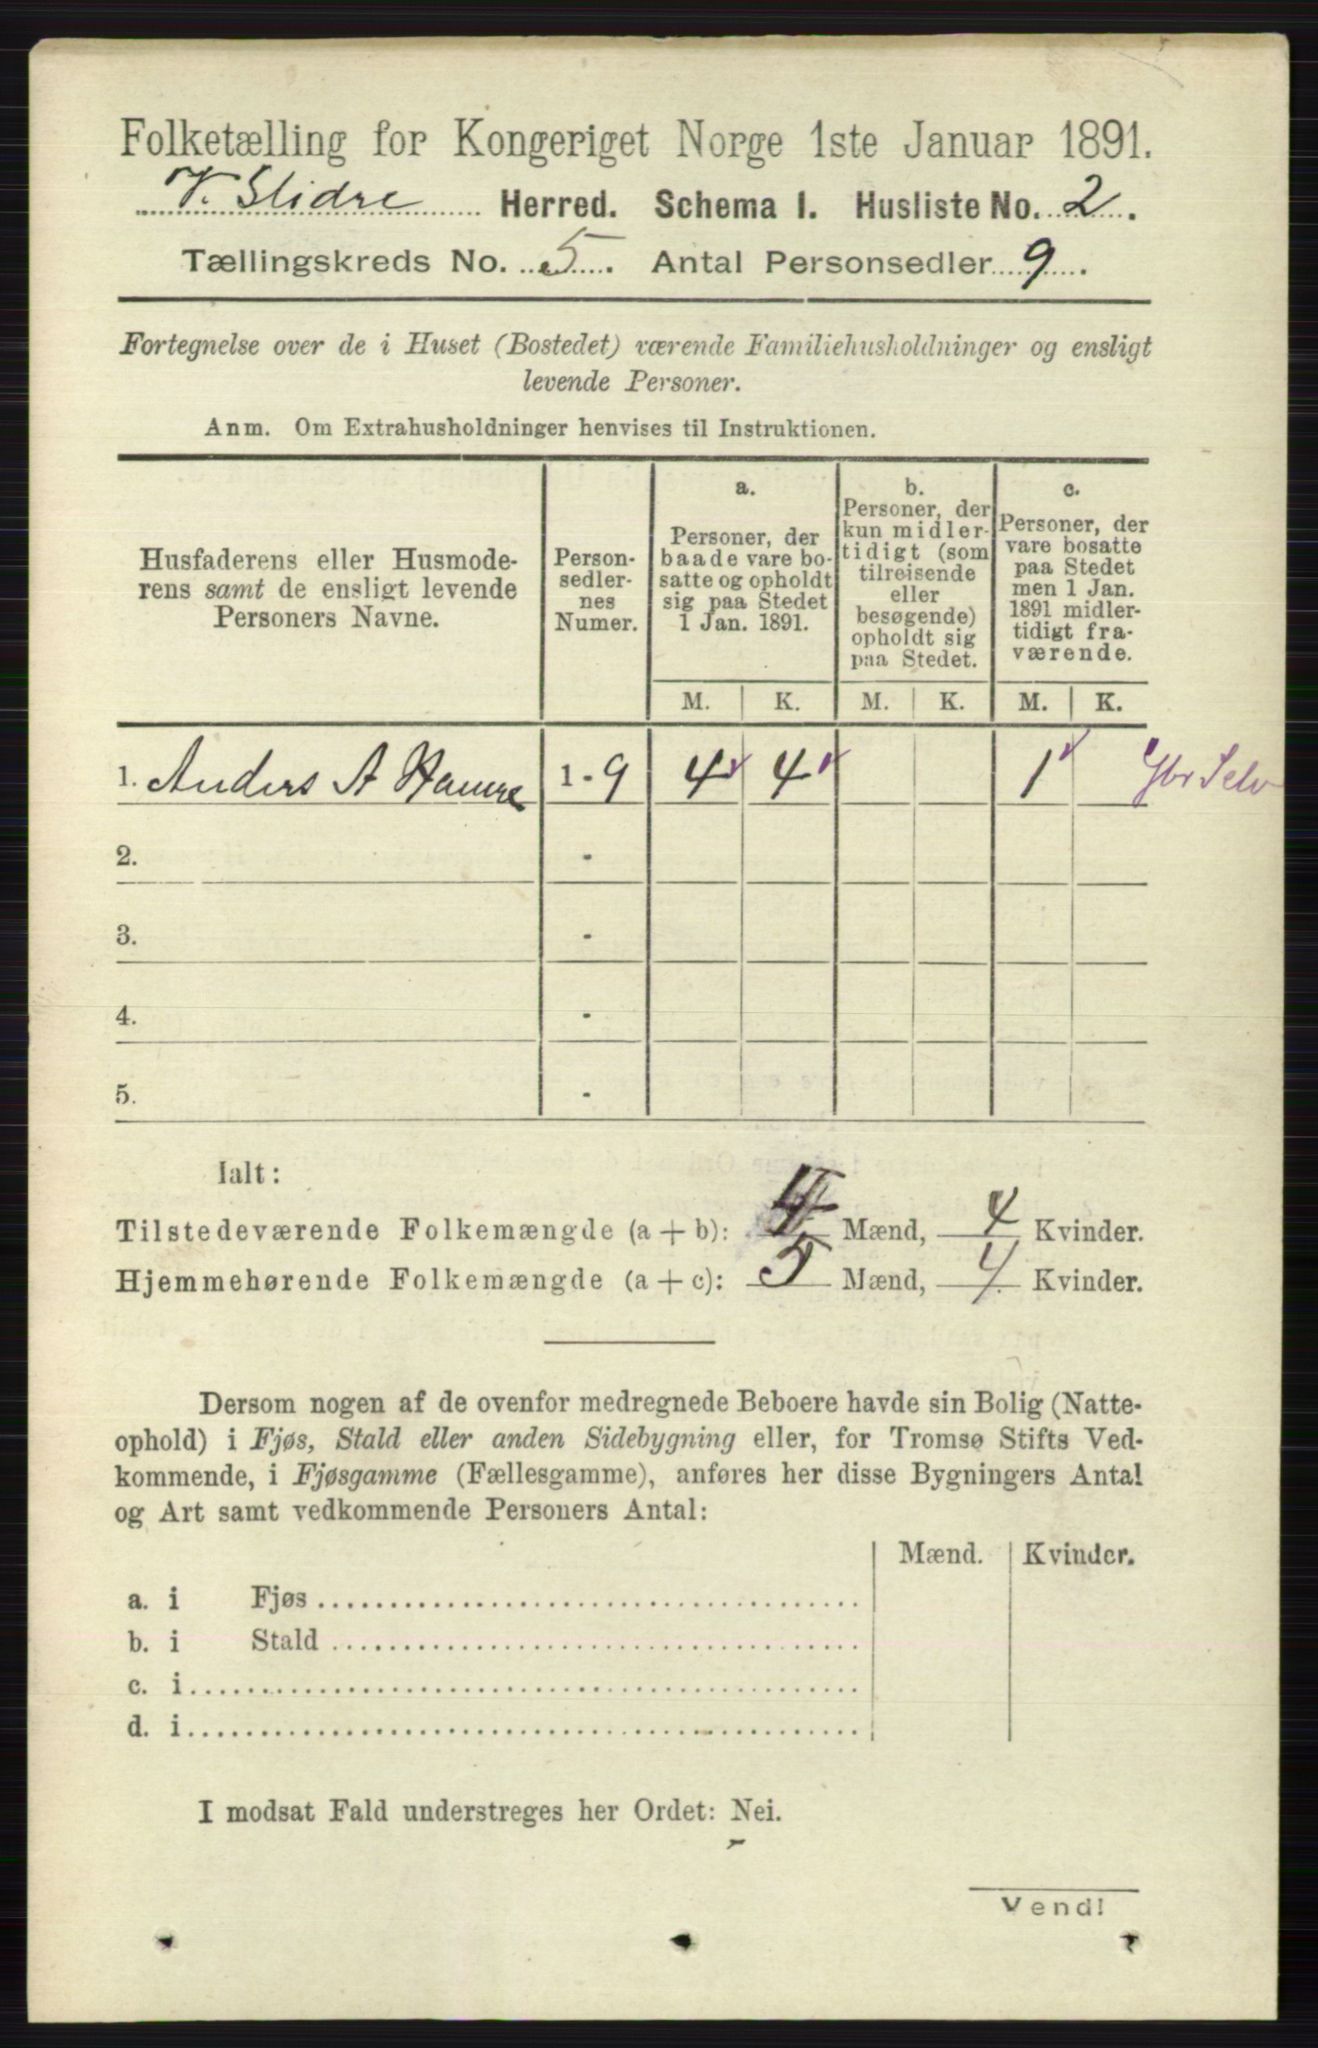 Folketælling for Kongeriget Norge 1ste Januar 1891.
V. Slidre Herred. Schema I. Husliste No. 2.
Tællingskreds No. 5. Antal Personsedler 9.
Fortegnelse over de i Huset (Bostedet) værende Familiehusholdninger og ensligt
levende Personer.
Anm. Om Extrahusholdninger henvises til Instruktionen.
Husfaderens eller Husmode-
rens samt de ensligt levende
Personers Navne.
Person-
sedler-
nes
Numer.
a.
Personer, der
baade vare bo-
satte og opholdt
sig paa Stedet
1 Jan. 1891.
b.
Personer, der
kun midler-
tidigt (som
tilreisende
eller
besøgende)
opholdt sig
paa Stedet.
c.
Personer, der
vare bosatte
paa Stedet
men 1 Jan.
1891 midler-
tidigt fra-
værende.
M. K. M. K. M. K.
1. Anders A Hamre 1 - 9 4 4 1
2. -
3. -
4. -
5. -
Ialt:
Tilstedeværende Folkemængde (a + b): 4 Mænd, 4 Kvinder.
Hjemmehørende Folkemængde (a + c): 5 Mænd, 4 Kvinder.
Dersom nogen af de ovenfor medregnede Beboere havde sin Bolig (Natte-
ophold) i Fjøs, Stald eller anden Sidebygning eller, for Tromsø Stifts Ved-
kommende, i Fjøsgamme (Fællesgamme), anføres her disse Bygningers Antal
og Art samt vedkommende Personers Antal:
Mænd. Kvinder.
a. i Fjøs
b. i Stald
c. i
d. i
I modsat Fald understreges her Ordet: Nei.
Vend!